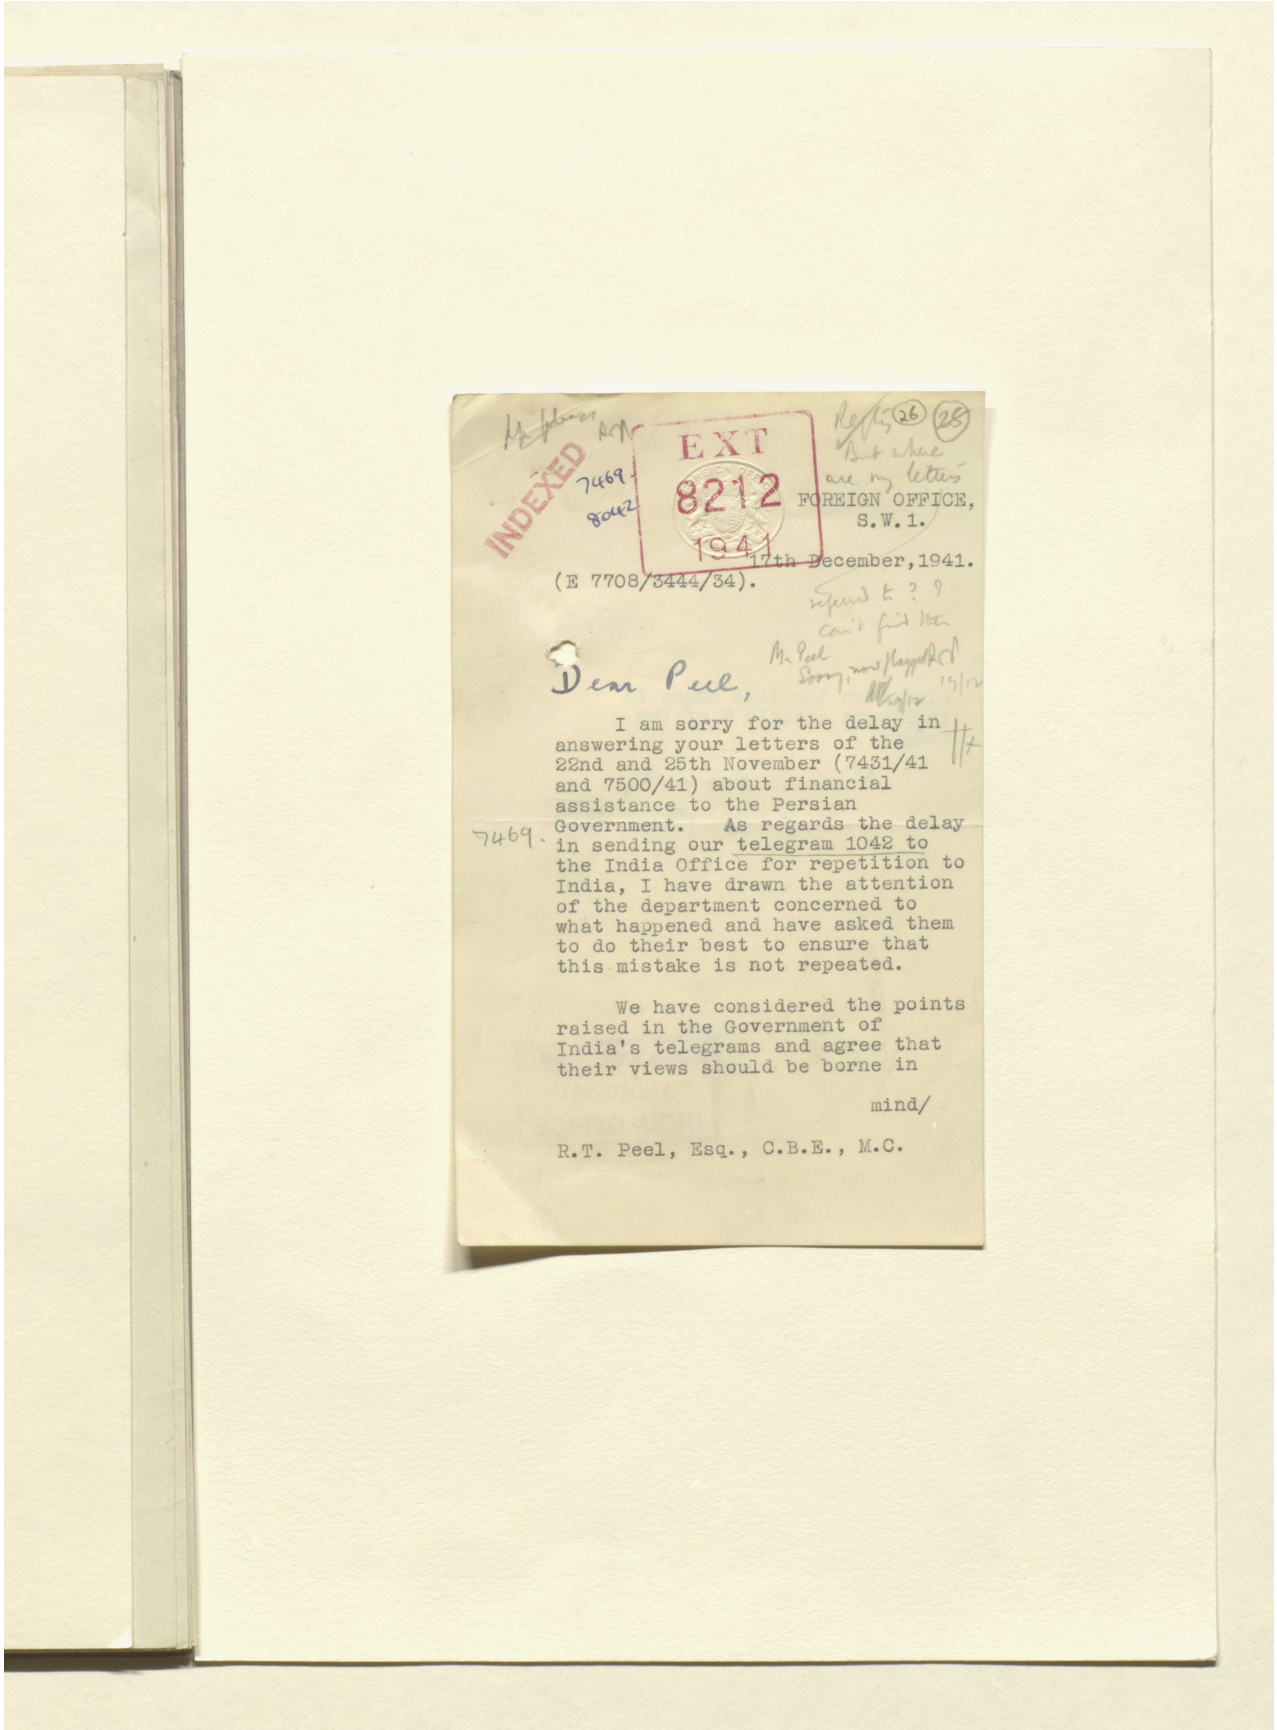 Reply 26 25
INDEXED
7469.
8042
EXT
8212
1941
But where
are my letters
FOREIGN OFFICE,
S.W.1.
17th December, 1941.
(E 7708/3444/34).
referred to ? ?
can't find them
Mr Peel
Sorry, now flagged
19/12
Dear Peel,
I am sorry for the delay in
answering your letters of the
22nd and 25th November (7431/41
and 7500/41) about financial
assistance to the Persian
Government. As regards the delay
7469.
in sending our telegram 1042 to
the India Office for repetition to
India, I have drawn the attention
of the department concerned to
what happened and have asked them
to do their best to ensure that
this mistake is not repeated.
We have considered the points
raised in the Government of
India's telegrams and agree that
their views should be borne in
mind/
R.T. Peel, Esq., C.B.E., M.C.